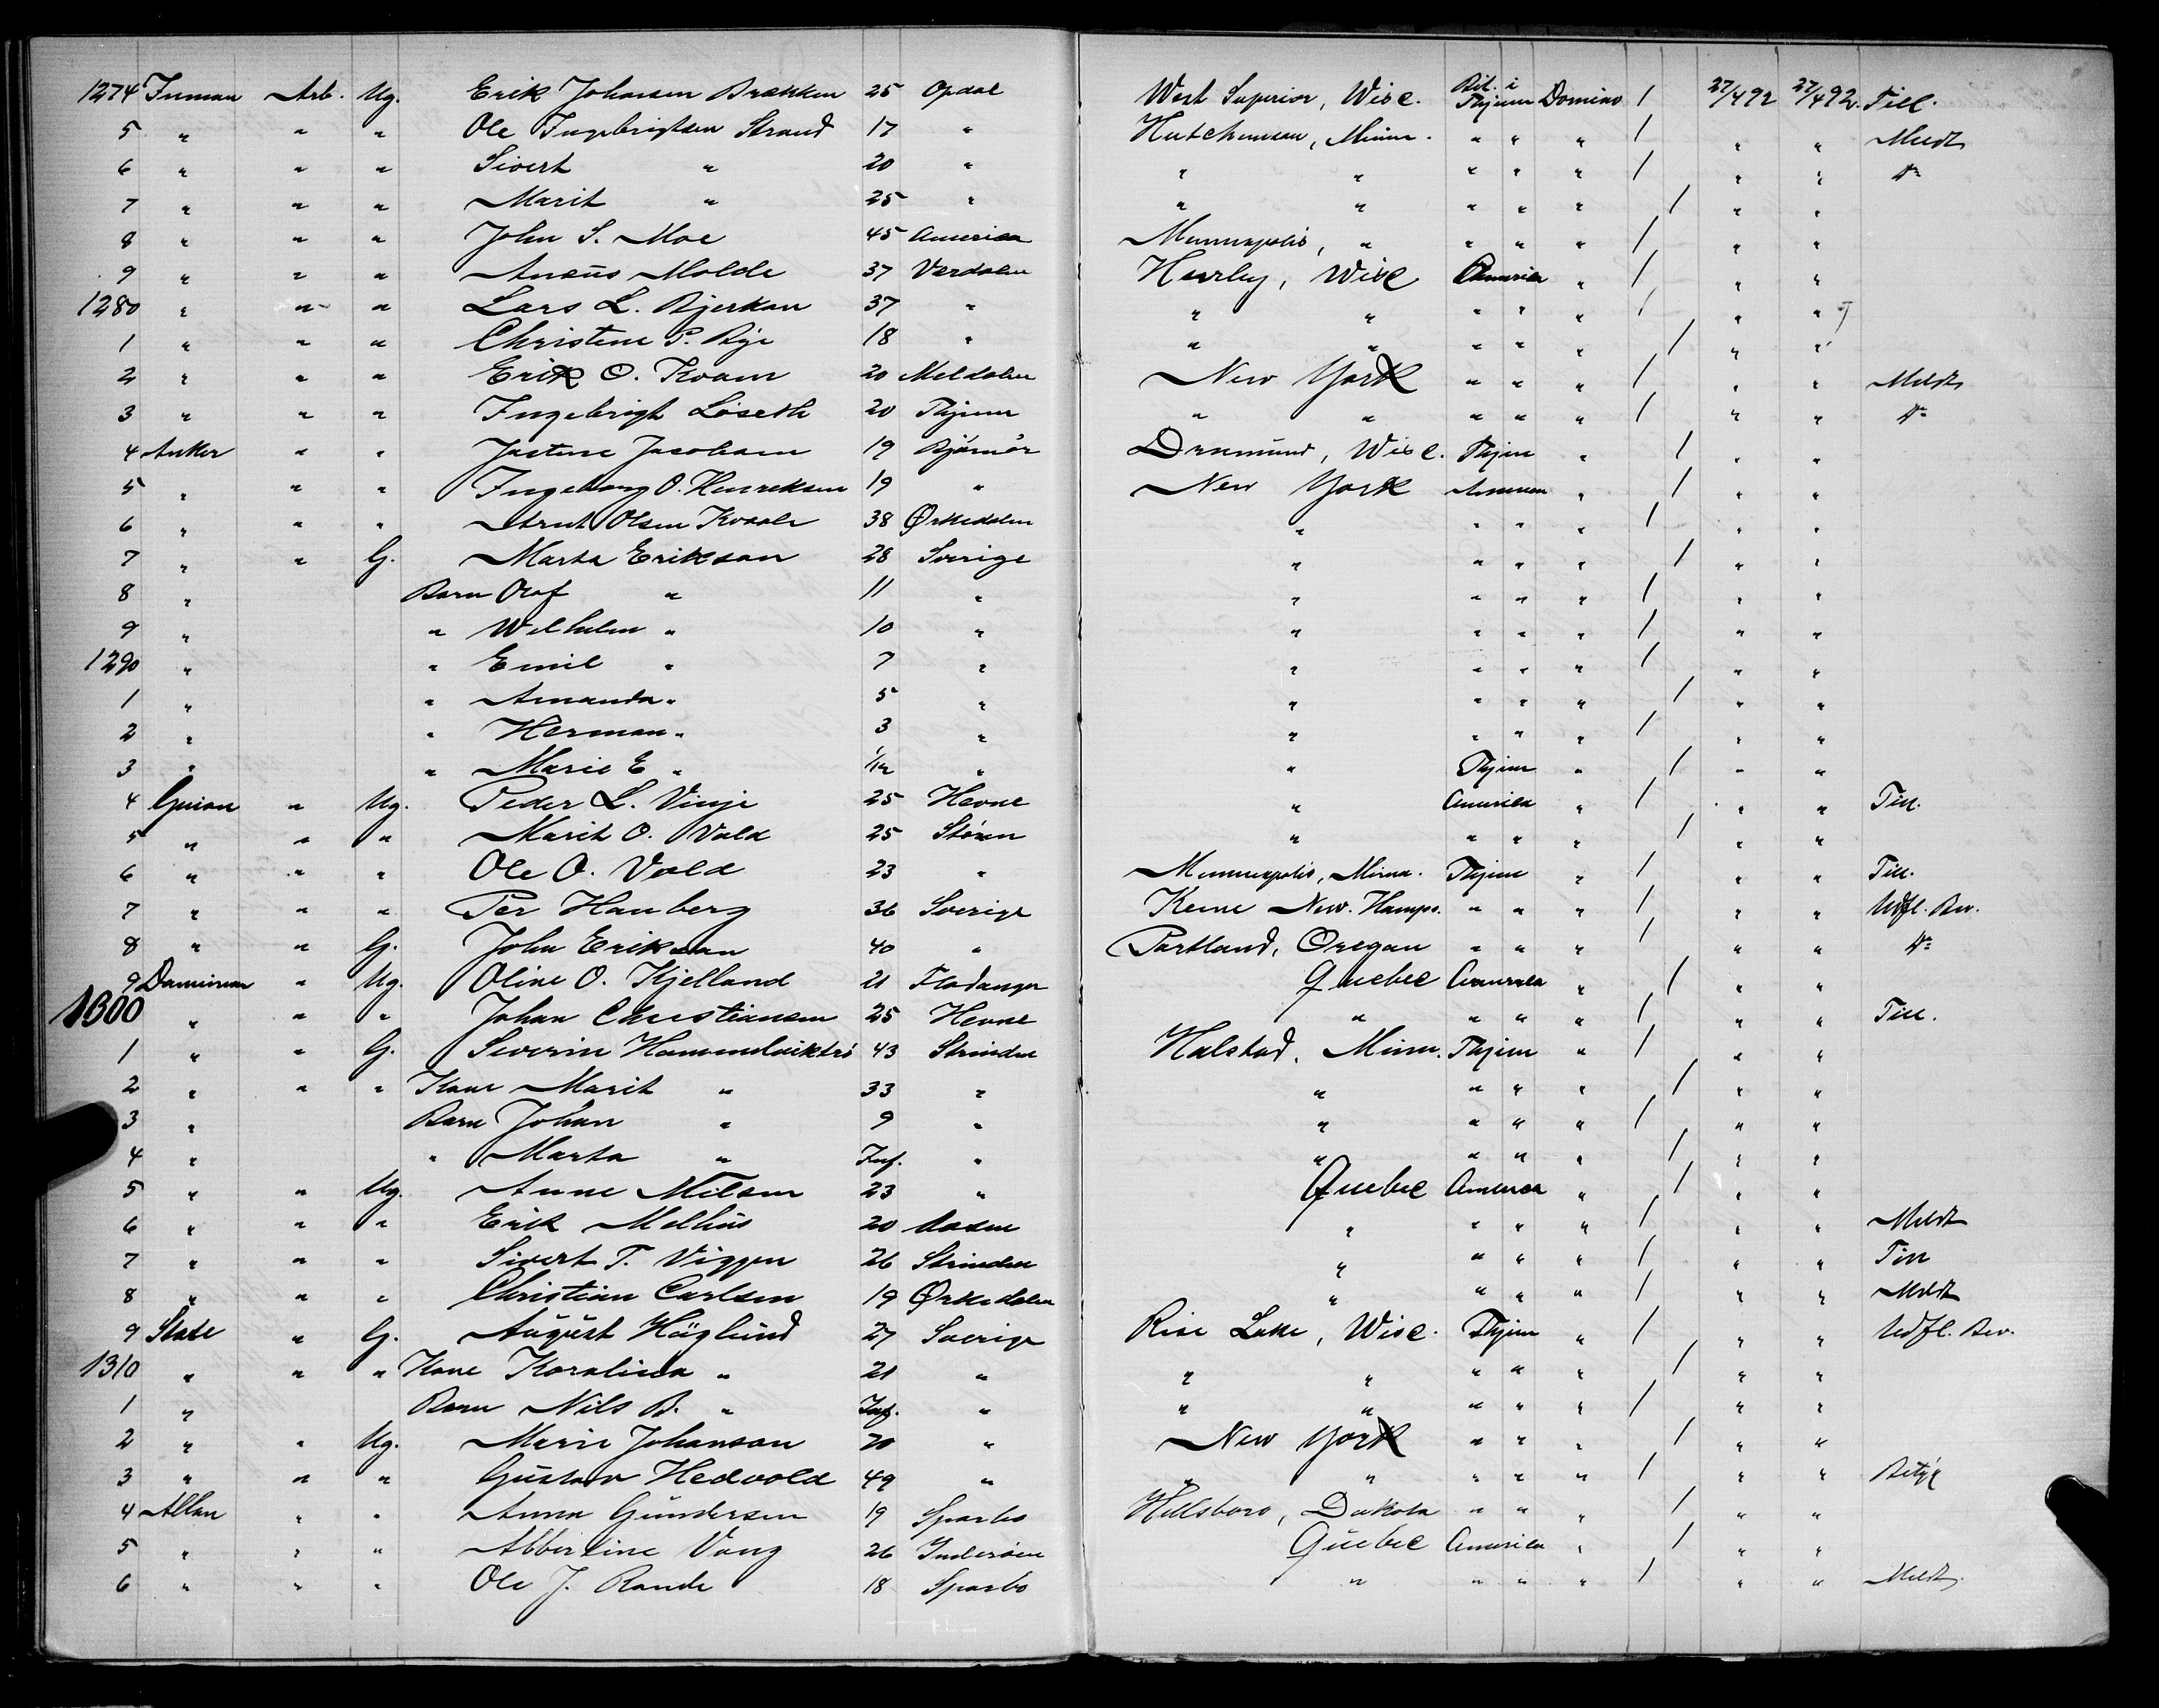 1274 Inman Arb. Ug. Erik Johansen Brækken 25 Opdal West Superior, Wisc. Bil. i Thjem Domino 1 27/4 92 27/4 92. Till.
5 " " " Ole Ingebrigtsen Strand 17 " Hutchenson, Minn. " " " 1 " " Meldt
6 " " " Sivert " 20 " " " " " " 1 " " do
7 " " " Marit " 25 " " " " " " 1 " "
8 " " " John S. Moe 45 America Minneapolis, " " " " 1 " "
9 " " " Anæus Molde 37 Værdalen Hurley, Wisc America " 1 " "
1280 " " " Lars L. Bjerkan 37 " " " " " " 1 " "
1 " " " Christine P. Bye 18 " " " " " " 1 " "
2 " " " Erik O. Kvam 20 Meldalen New York " " " 1 " " Meldt
3 " " " Ingebrigt Löseth 20 Thjem " " " " " 1 " " do
4 Anker " " Justine Jacobsen 19 Bjørnör Drumund, Wisc. Thjem " 1 " "
5 " " " Ingeborg O. Henriksen 19 " New York America " 1 " "
6 " " " Arnt Olsen Kvaale 38 Ørkedalen " " " " 1 " "
7 " " G. Marta Erikson 28 Sverige " " " " 1 " "
8 " Barn Olof " 11 " " " " " 1 " "
9 " " Wilhelm " 10 " " " " " 1 " "
1290 " " Emil " 7 " " " " " 1 " "
1 " " Amanda " 5 " " " " " 1 " "
2 " " Herman " 3 " " " " " 1 " "
3 " " Marie E " 1/12 " " Thjem " 1 " "
4 Guion " Ug. Peder L. Vinje 25 Hevne " America " 1 " " Till.
5 " " " Marit O. Vold 25 Stören " " " " 1 " "
6 " " " Ole O. Vold 23 " Minneapolis, Minn. Thjem " 1 " " Till.
7 " " " Per Hanberg 36 Sverige Keene New. Hamps. " " " 1 " " Udfl. Bev.
8 " " G. John Erikson 40 " Portland, Oregon " " " 1 " " do
9 Dominion " Ug. Oline O. Kjelland 21 Fladanger Quebec America " 1 " "
1300 " " " Johan Christiansen 25 Hevne " " " " 1 " " Till.
1 " " G. Severin 43 Strinden Halstad, Minn. Thjem " 1 " "
2 " " " Kone Marit " 33 " " " " " 1 " "
3 " Barn Johan " 9 " " " " " 1 " "
4 " " Marta " Inf. " " " " " 1 " "
5 " " Ug. Anne Nilsen 23 " Quebec America " 1 " "
6 " " " Erik Melhus 20 Aasen " " " " 1 " " Meldt
7 " " " Sivert T. Viggen 26 Strinden " " " " 1 " " Till
8 " " " Christian Carlsen 19 Ørkedalen " " " " 1 " " Meldt
9 State " G. August Höglund 27 Sverige Rise Lake, Wisc. Thjem " 1 " " Udfl. Bev.
1310 " " " Kone Korolina " 21 " " " " " " 1 " "
1 " Barn Nils B. " Inf. " " " " " " 1 " "
2 " " Ug. Marie Johanson 20 " New York " " " 1 " "
3 " " " Gustav Hedvold 49 " " " " " " 1 " "
4 Allan " " Anna Gundersen 19 Sparbo Hillsboro, Dakota " " " 1 " "
5 " " " Albertine Vang 26 Inderöen Quebec America " 1 " "
6 " " " Ole J. Rande 18 Sparbo " " " " 1 " " Meldt.